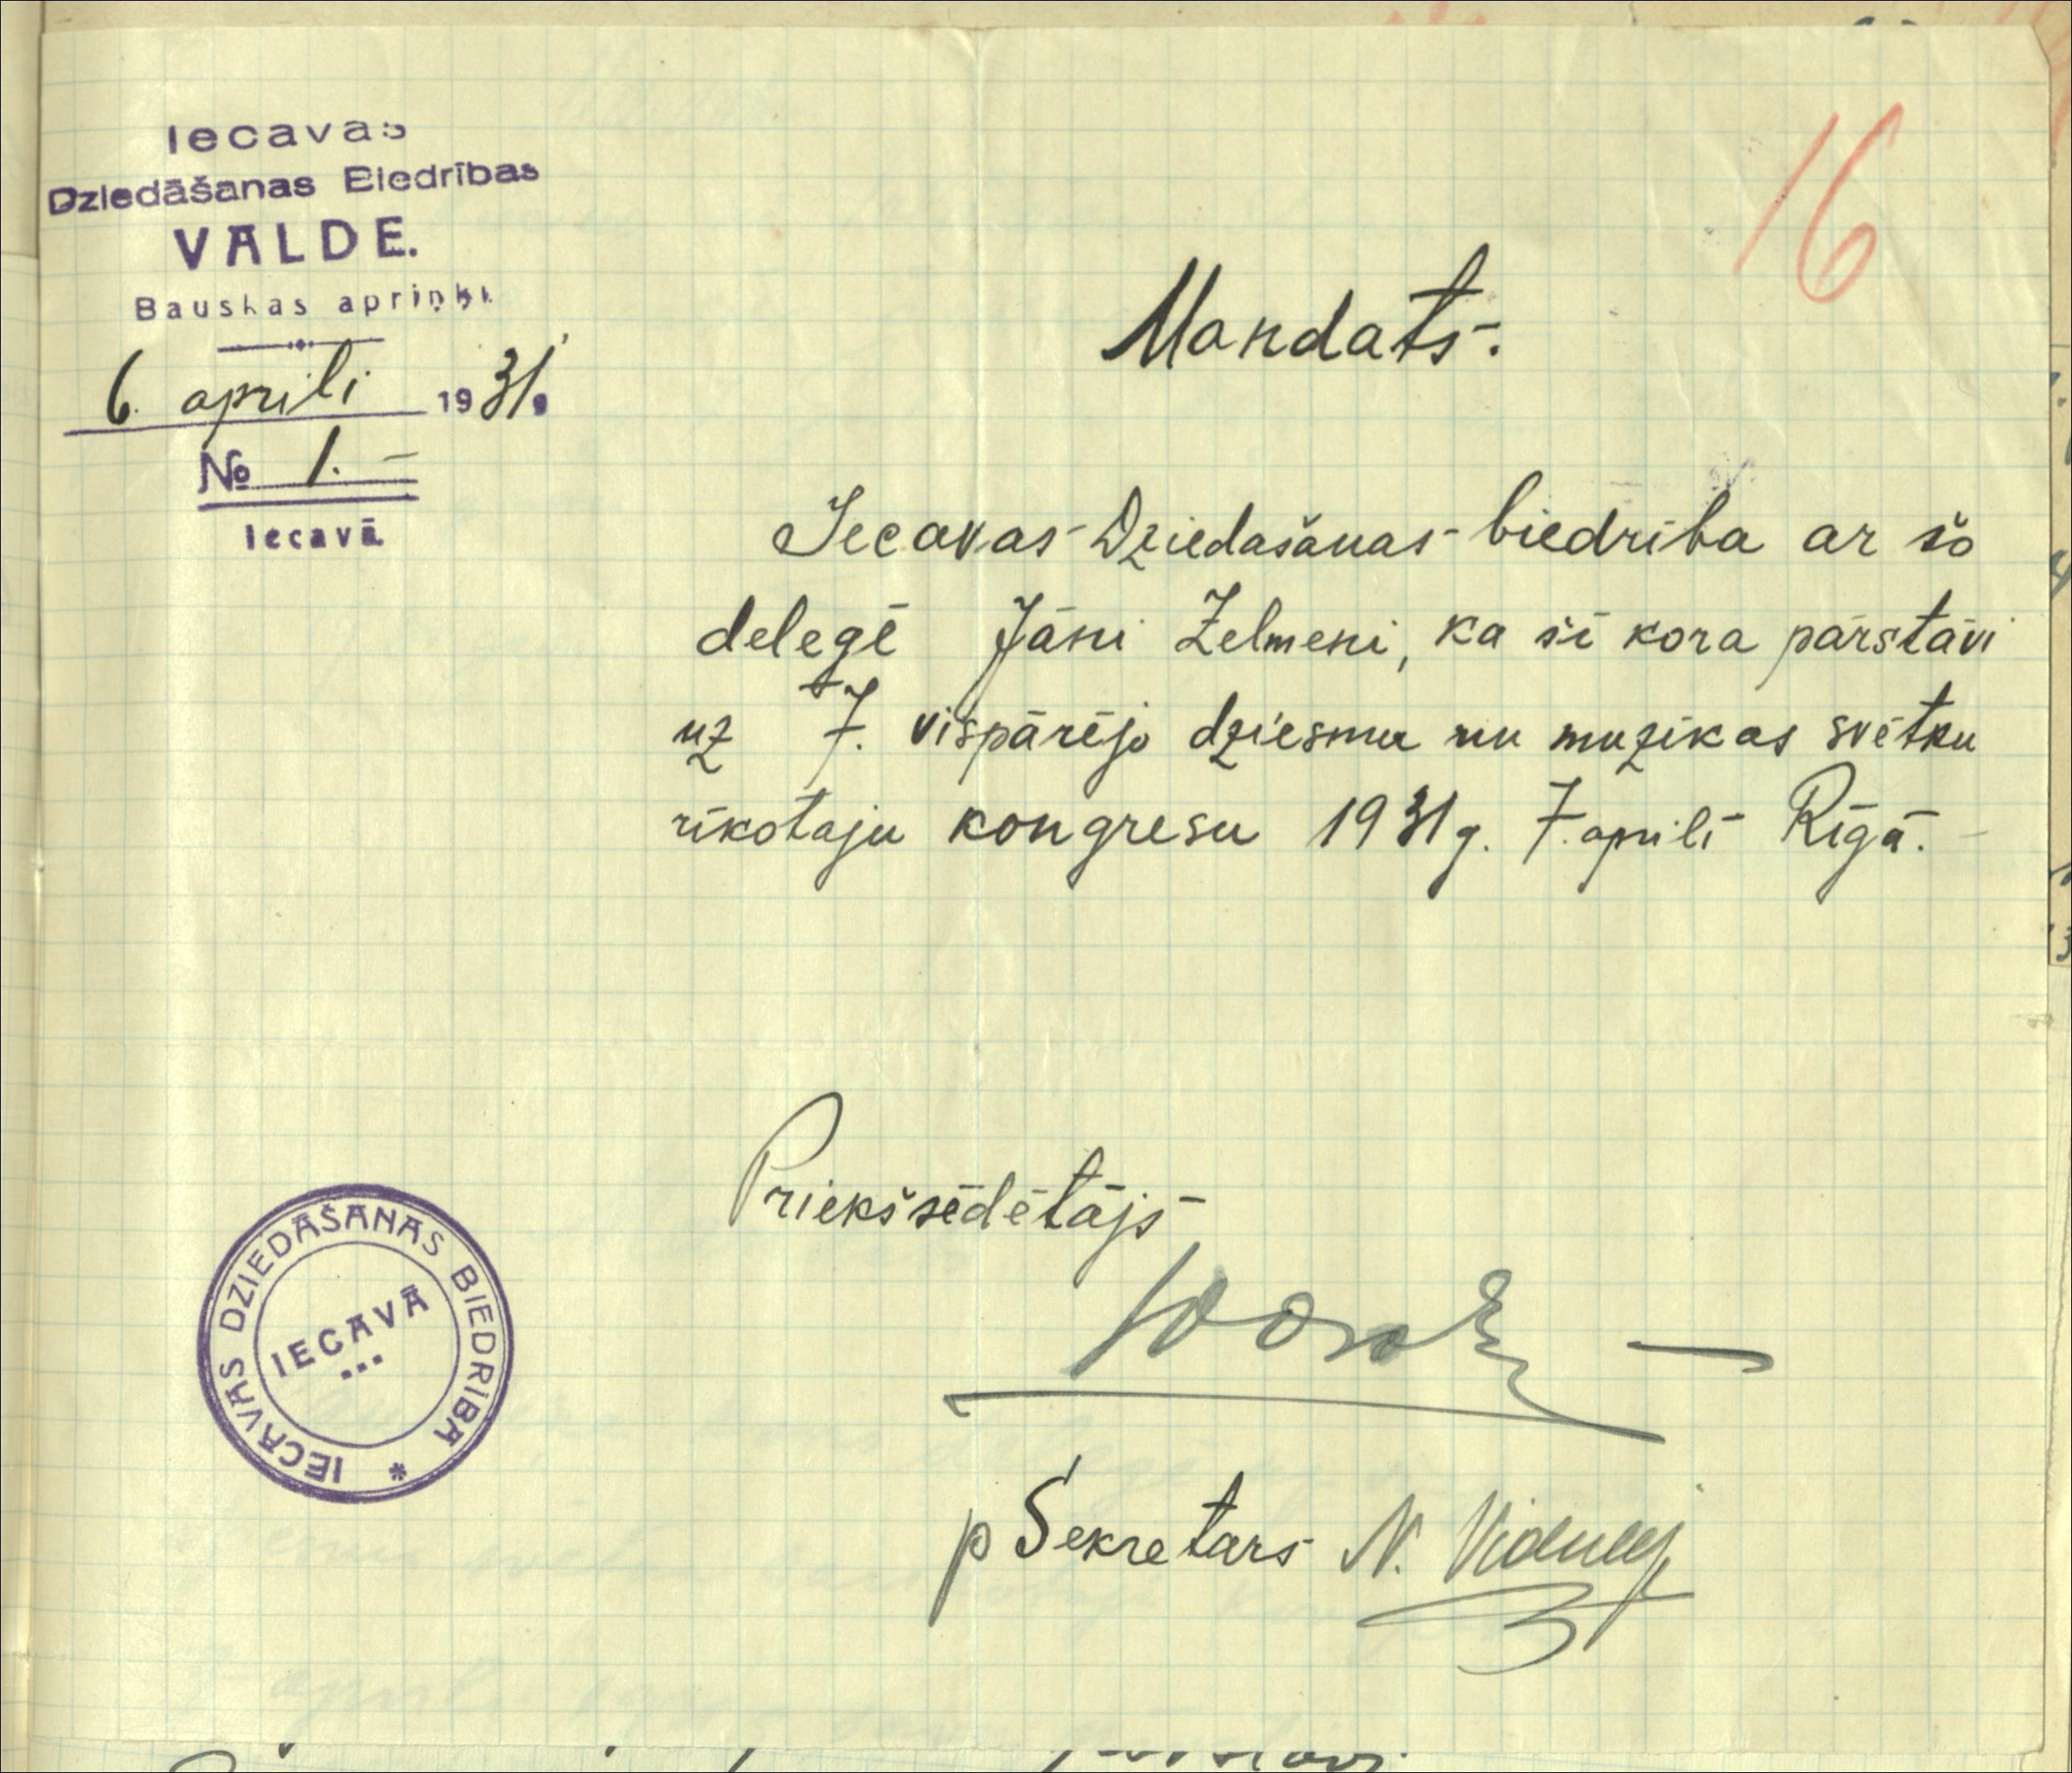 Iecavas
Dziedāšanas Biedrības
VALDE.
Bauskas apriņķī.
6. aprilī 1931.
№ 1. –
Iecavā.
16
Mandats.
Iecavas Dziedašanas biedrība ar šo
delegē Jāni Zelmeni, ka šī kora pārstāvi
uz 7. vispārējo dziesmu un muzikas svētku
rīkotaju kongresu 1931 g. 7. aprilī Rīgā.
Priekšsēdētājs
p Sekretars N.
IECAVAS DZIEDĀŠANAS BIEDRIBA *
IECAVĀ